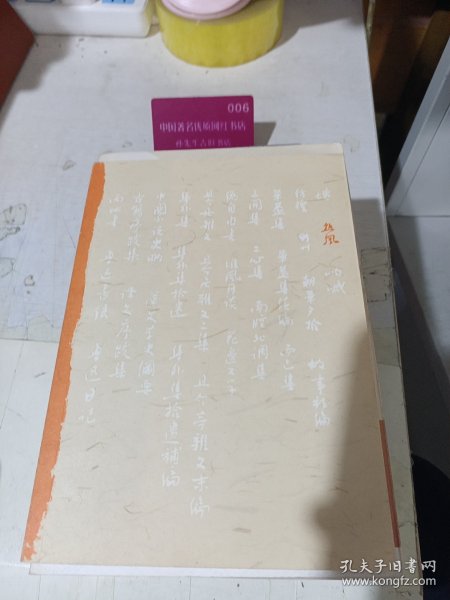 006
中国著名优质网红书店
坟 热风 呐喊
彷徨 野草 朝花夕拾 故事新编
华盖集 华盖集续编 而已集
三闲集 二心集 南腔北调集
伪自由书 准风月谈 花边文学
且介亭杂文 且介亭杂文二集 且介亭杂文末编
集外集 集外集拾遗 集外集拾遗补编
中国小说史略 汉文学史纲要
古籍序跋集 译文序跋集
两地书 鲁迅书信 鲁迅日记
孔夫子旧书网
www.kongfz.com